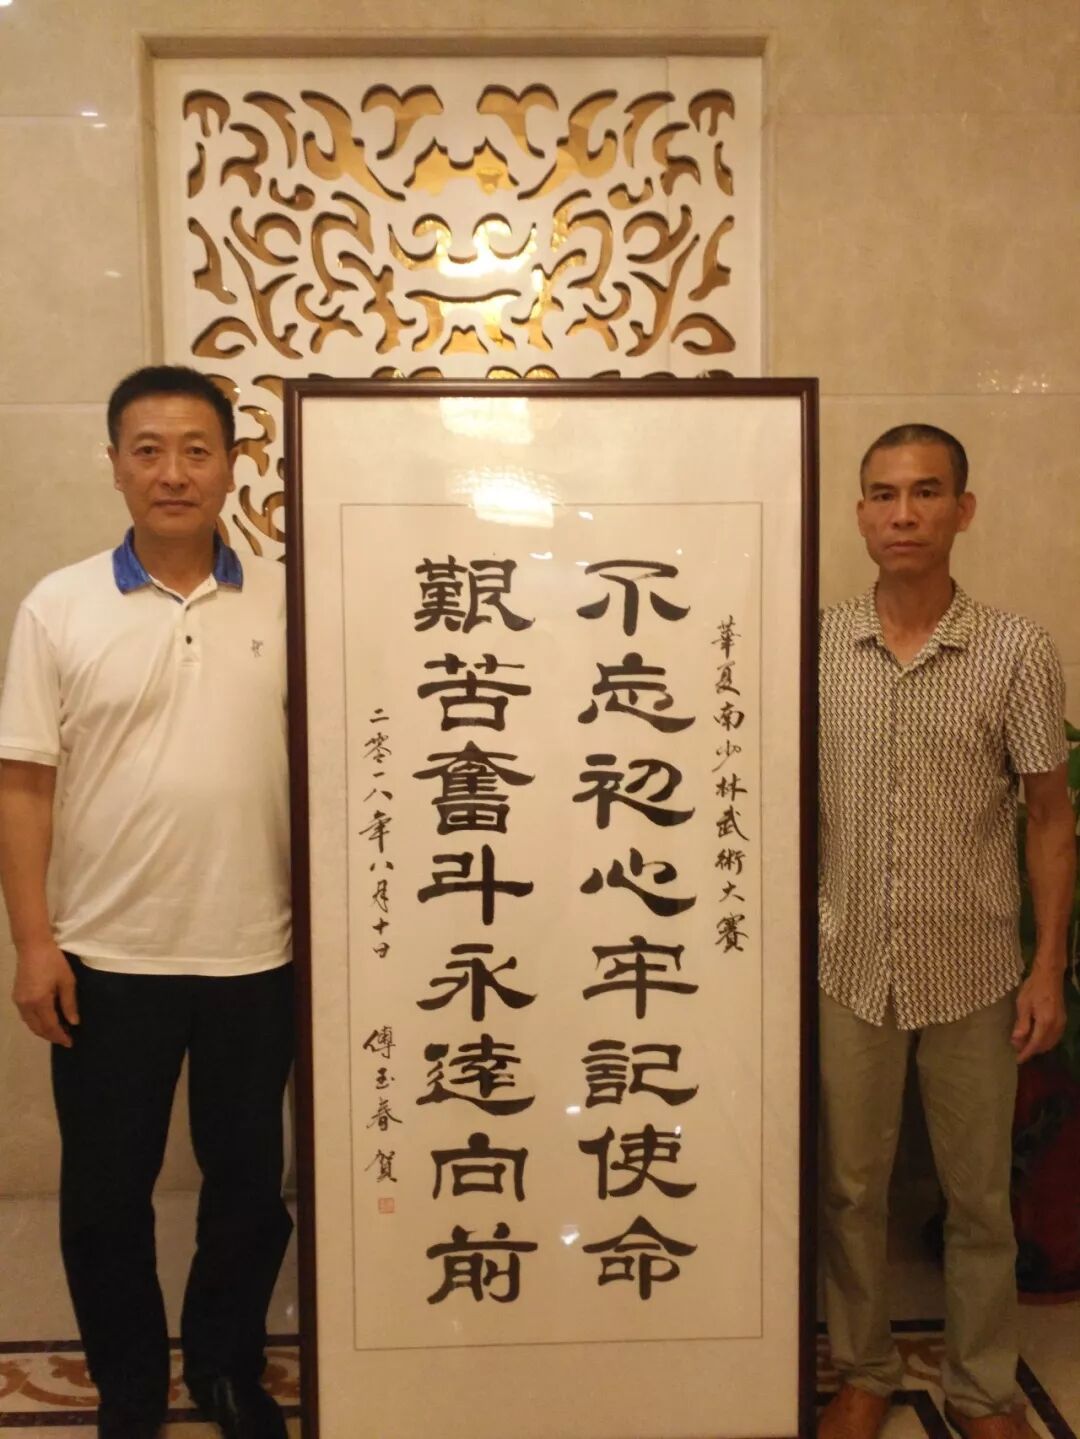 華夏南少林武術大賽
不忘初心牢記使命
艱苦奮斗永遠向前
二零一八年八月十日
傅玉春 賀